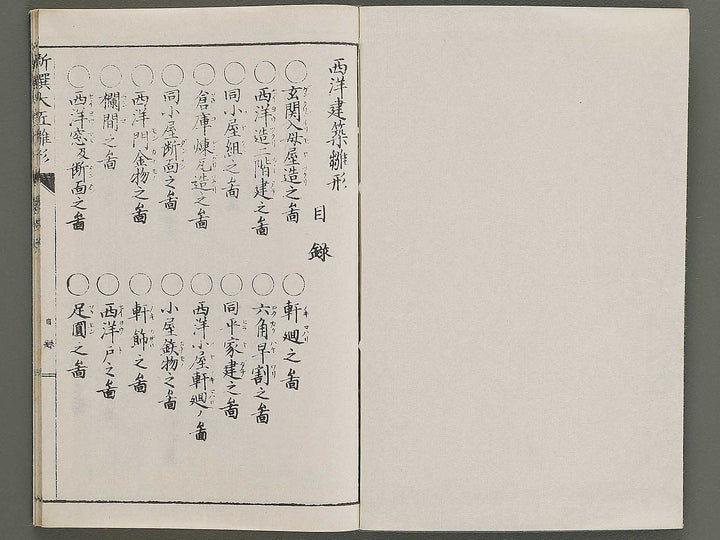 西洋建築雛形
目録
○玄関入母屋造之啚
○西洋造二階建之啚
○同小屋組之啚
○倉庫煉瓦造之啚
○同小屋断面之啚
○西洋門金物之啚
○欄間之啚
○西洋窓及断面之啚
○軒廻之啚
○六角早割之啚
○同平家建之啚
○西洋小屋軒廻ノ啚
○小屋鉄物之啚
○軒飾之啚
○西洋戸之啚
○足圓之啚
新撰大匠雛形
目録